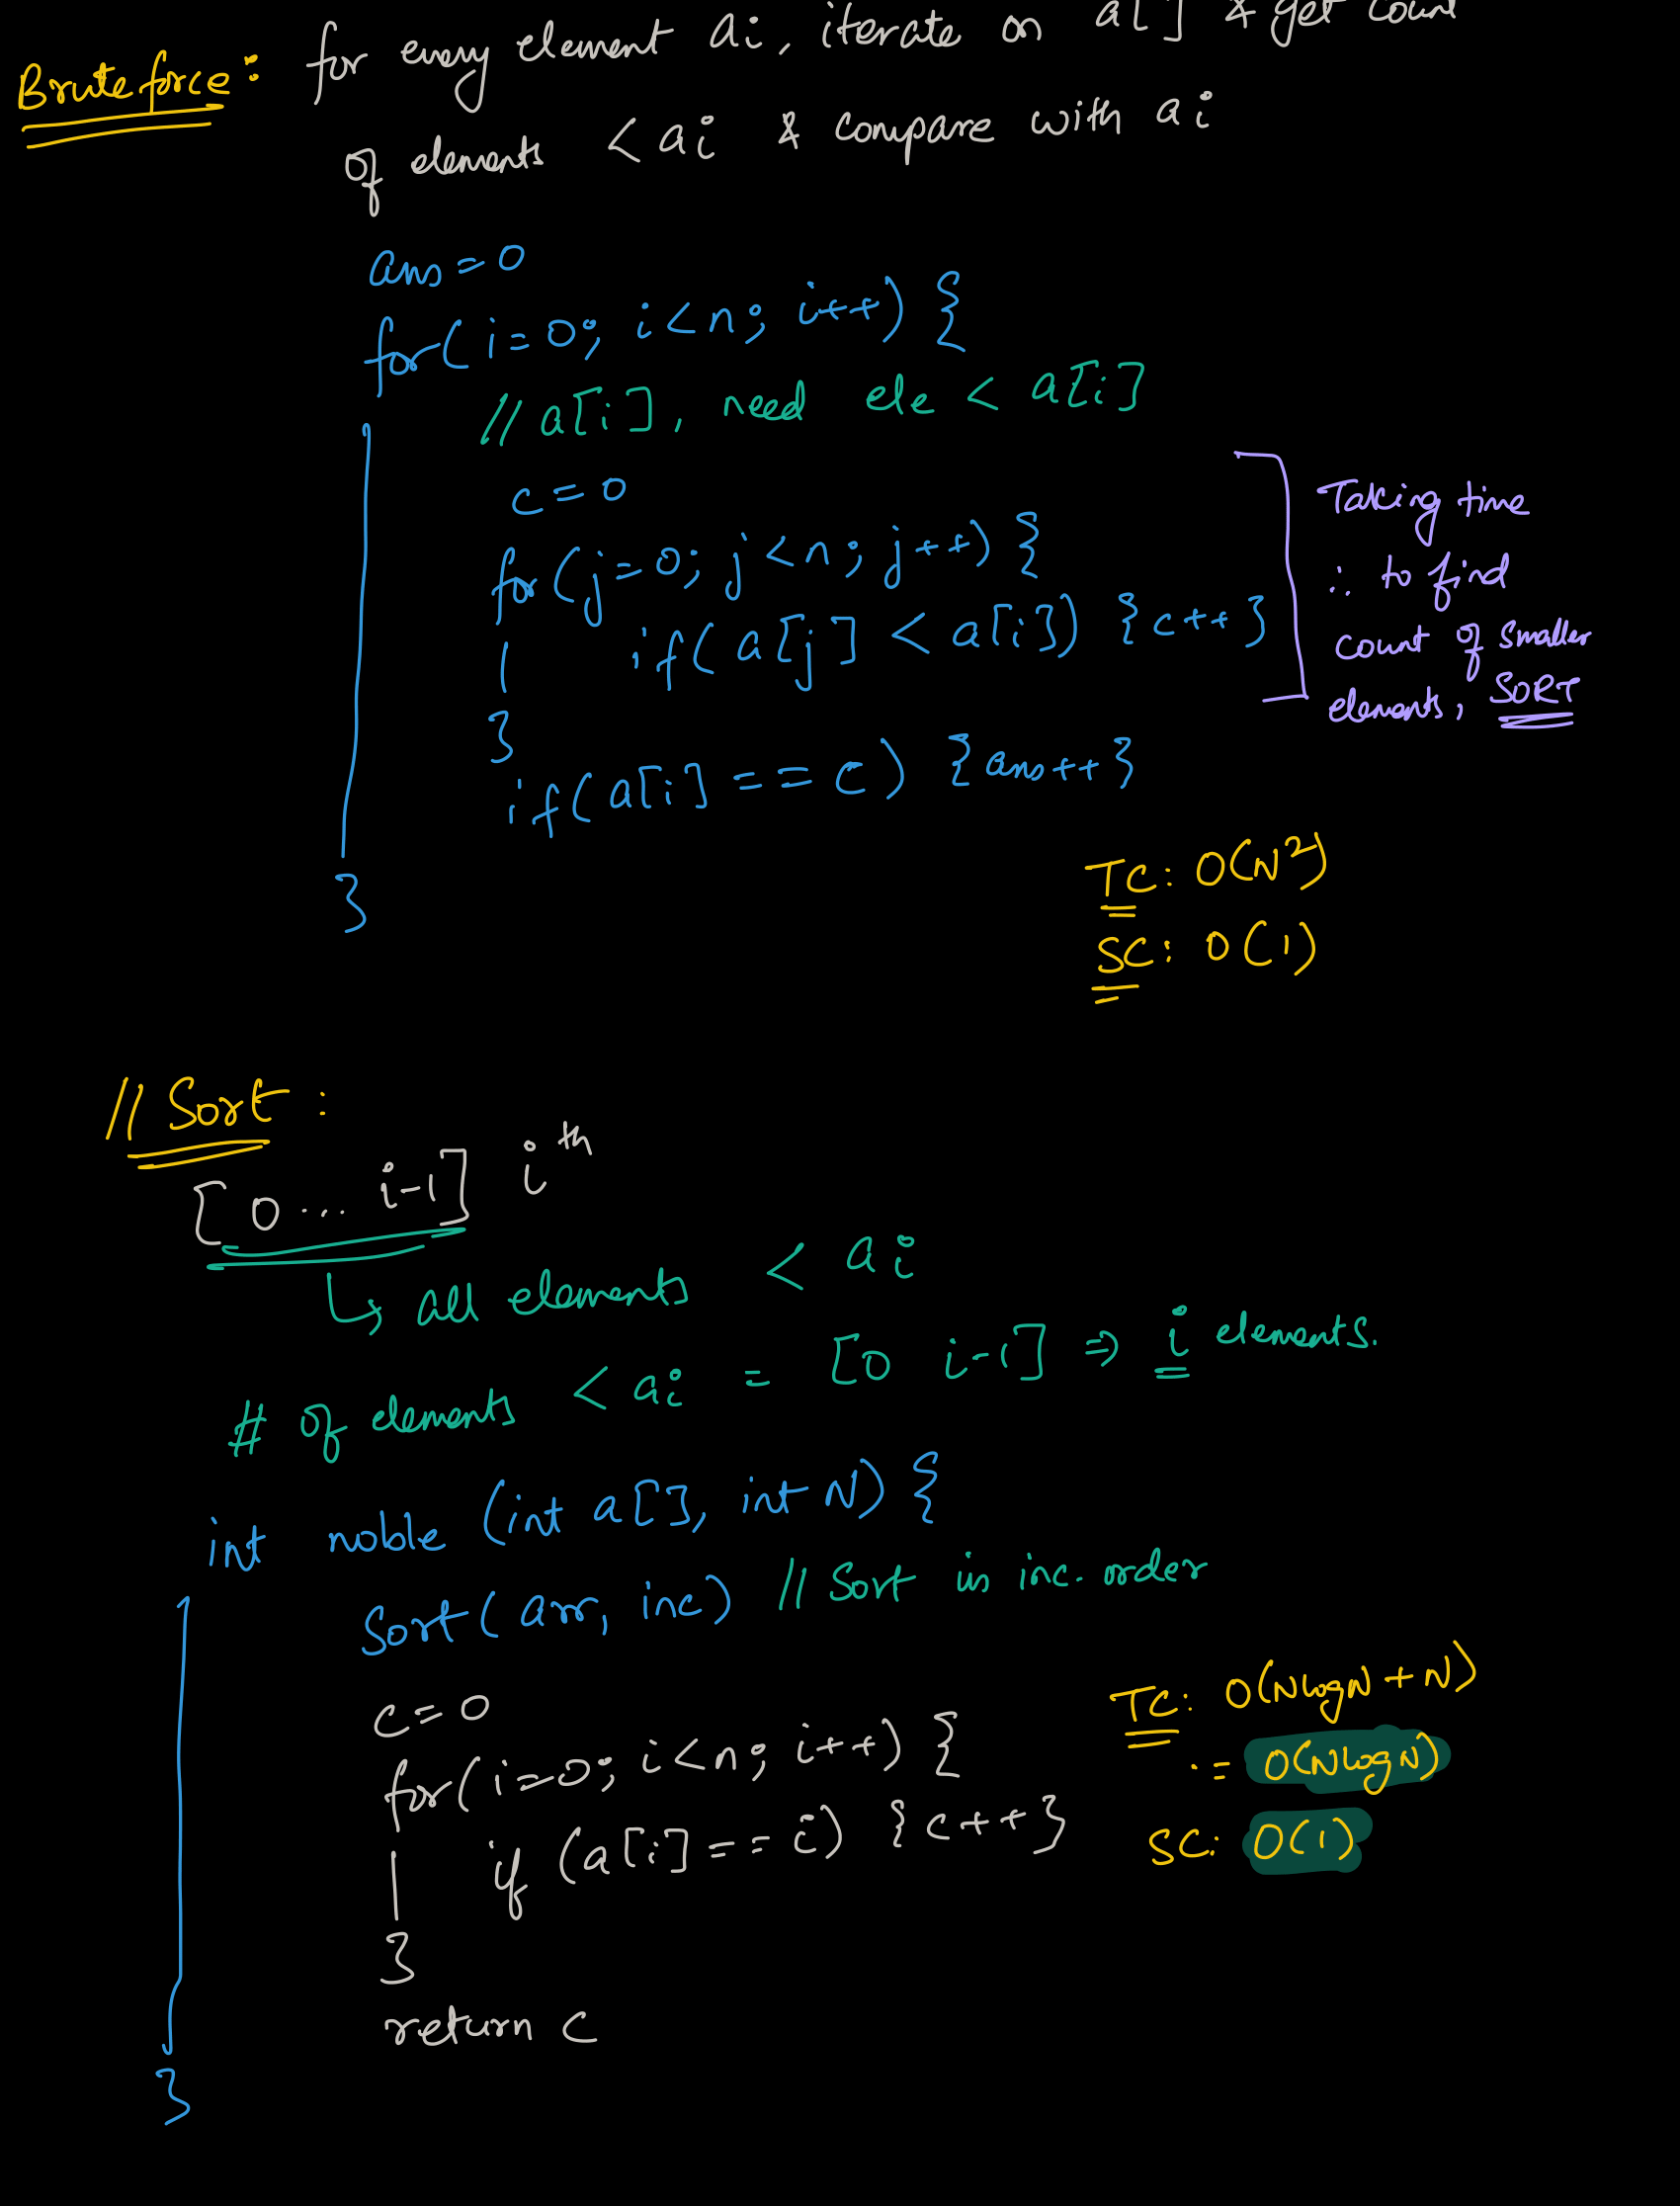 Bruteforce: for every element ai, iterate on a[] & get count
of elements < ai & compare with ai
ans = 0
for(i=0; i<n; i++) {
// a[i], need ele < a[i]
c = 0
for(j=0; j<n; j++) {
if(a[j] < a[i]) {c++}
}
Taking time
∴ to find
count of smaller
elements, SORT
if(a[i] == c) {ans++}
}
TC: O(N²)
SC: O(1)
// Sort:
[0... i-1] iᵗʰ
↳ all elements < ai
# of elements < ai = [0 i-1] ⇒ i elements.
int noble (int a[], int N) {
Sort(arr, inc) // Sort in inc. order
c = 0
for(i=0; i<n; i++) {
if (a[i] == i) {c++}
}
return c
}
TC: O(NlogN + N)
:= O(NlogN)
SC: O(1)